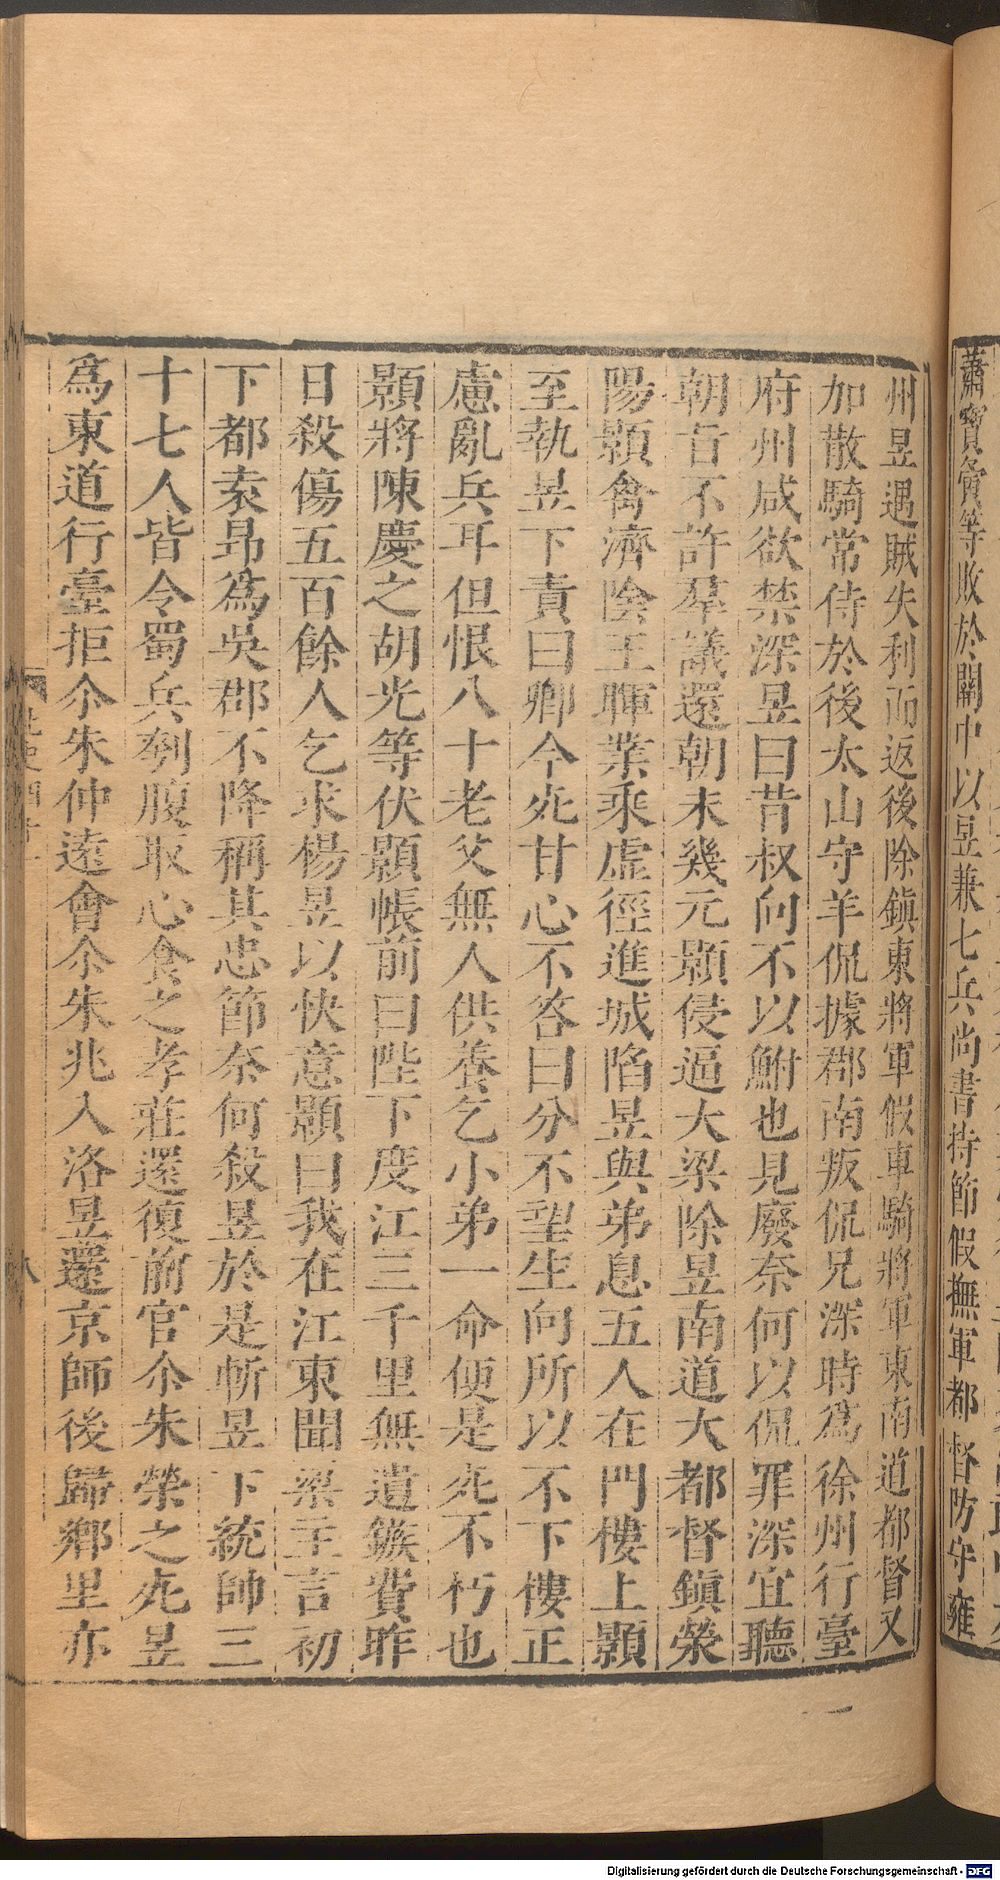 蕭寶夤等敗於關中以昱兼七兵尚書持節假撫軍都督防守雍
州昱遇賊失利而返後除鎮東將軍假車騎將軍東南道都督又
加散騎常侍於後太山守羊侃據郡南叛侃兄深時爲徐州行臺
府州咸欲禁深昱曰昔叔向不以鮒也見廢奈何以侃罪深宜聽
朝旨不許羣議還朝未幾元顥侵逼大梁除昱南道大都督鎮滎
陽顥禽濟陰王暉業乘虛徑進城陷昱與弟息五人在門樓上顥
至執昱下責曰卿今死甘心不答曰分不望生向所以不下樓正
慮亂兵耳但恨八十老父無人供養乞小弟一命便是死不朽也
顥將陳慶之胡光等伏顥帳前曰陛下度江三千里無遺鏃費昨
日殺傷五百餘人乞求楊昱以快意顥曰我在江東聞梁主言初
下都袁昂爲吳郡不降稱其忠節奈何殺昱於是斬昱下統帥三
十七人皆令蜀兵刳腹取心食之孝莊還復前官尒朱榮之死昱
爲東道行臺拒尒朱仲遠會尒朱兆入洛昱還京師後歸鄉里亦
八
Digitalisierung gefördert durch die Deutsche Forschungsgemeinschaft - DFG